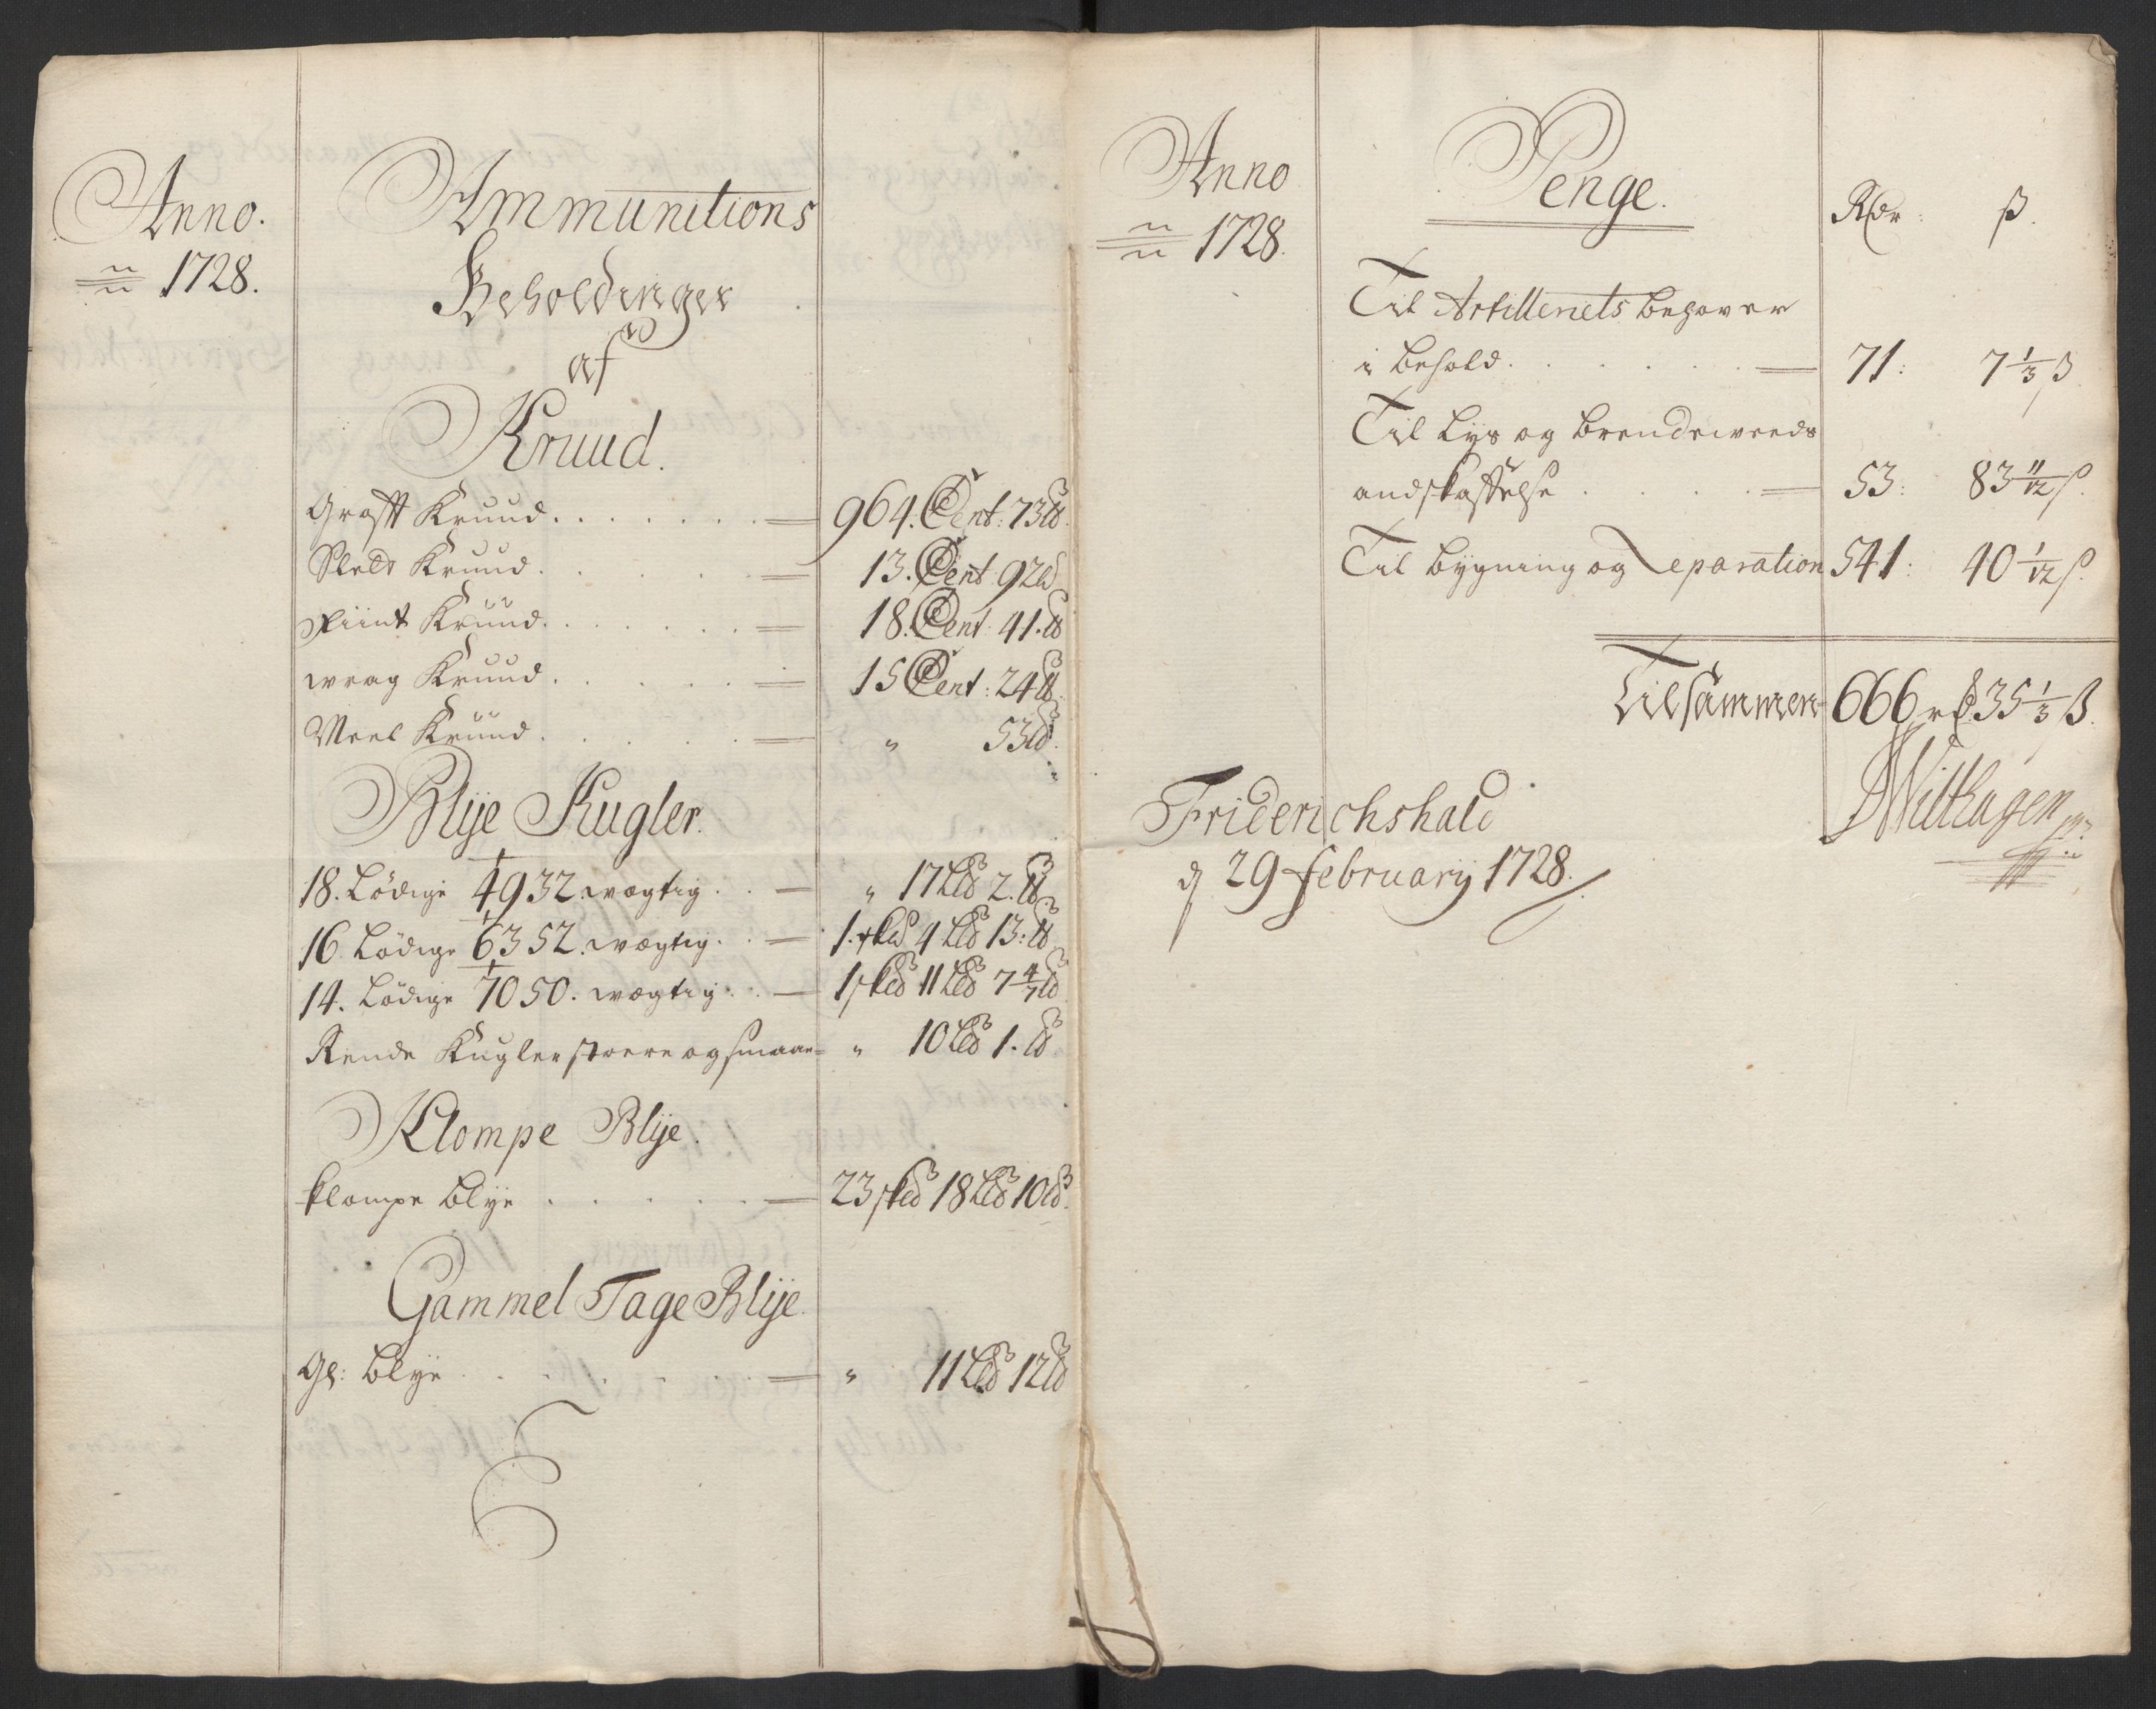 Anno.
1728.
Ammunitions
Beholdinger
af
Kruud.
Grofft Kruud. . . . . . . 964. Cent: 73 ℔.
Slett Kruud. . . . . . 13. Cent 92 ℔
Fiint Kruud. . . . . . 18. Cent 41. ℔
wrag Kruud. . . . . . 15 Cent: 24 ℔.
Meel Kruud. . . . . . " 53 ℔.
Blije Kugler.
18. Lödige 4932. wægtig. . . " 17 L℔ 2. ℔
16 Lödige 6352. wægtig. . . 1. sk℔ 4 L℔ 13: ℔
14. Lödige 7050. wægtig. . . 1 sk℔ 11 L℔ 7 4/7 ℔
Rende Kugler stoere og smaae " 10 L℔ 1. ℔
Klompe Blije.
klompe blije . . . . . 23 sk℔ 18 L℔ 10 ℔.
Gammel Tage Blije.
Gl: blije . . . . . . " 11 L℔ 12 ℔
Anno
1728.
Penge.
Rdr: ß.
Til Artilleriets behover
i behold. . . . . . 71: 7 1/3 ß
Til Lys og brendeweeds
andskaffelse . . . . 53: 83 11/12 ß.
Til bygning og Reparation 541: 40 1/12 ß.
Tilsammen 666 rd 35 1/3 ß.
Friderichshald
d 29 february 1728.